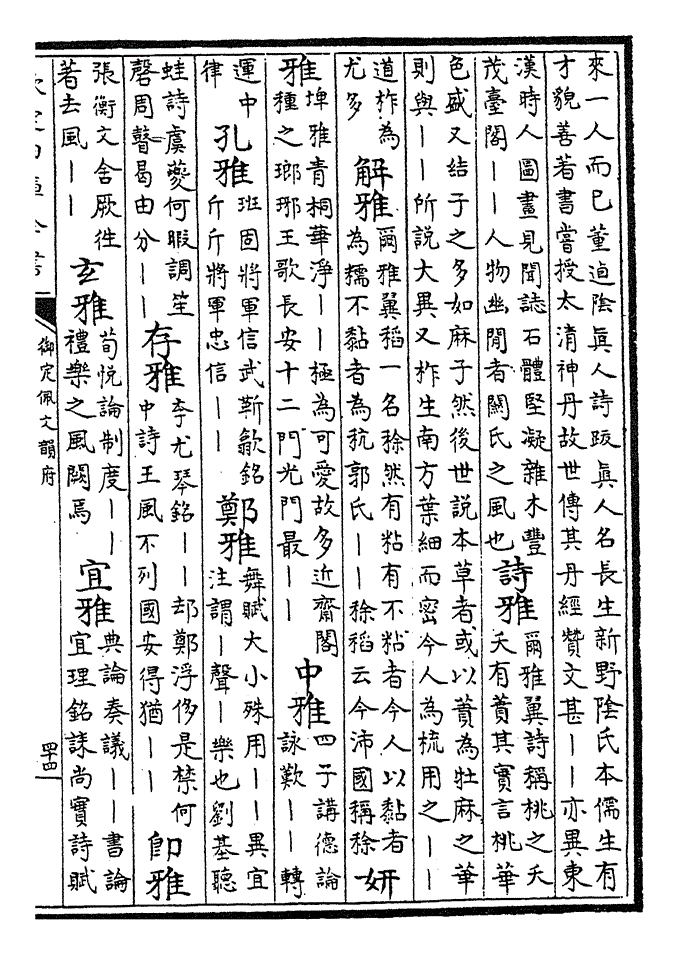 來一人而已董逌陰眞人詩跋眞人名長生新野陰氏本儒生有
才貌善著書嘗授太清神丹故世傳其丹經贊文甚||亦異東
漢時人圖畫見聞誌石體堅凝雜木豐
茂臺閣||人物幽閒者關氏之風也
詩雅
爾雅翼詩稱桃之夭
夭有蕡其實言桃華
色盛又結子之多如麻子然後世說本草者或以蕡為牡麻之華
則與||所說大異又柞生南方葉細而密今人為梳用之||
道柞為
尤多
解雅
爾雅翼稻一名稌然有粘有不粘者今人以黏者
為糯不黏者為秔郭氏||稌稻云今沛國稱稌
妍
雅
埤雅青桐華淨||極為可愛故多近齋閣
種之瑯琊王歌長安十二門光門最||
中雅
四子講德論
詠歎||轉
運中
律
孔雅
班固將軍信武靳歙銘
斤斤將軍忠信||
鄭雅
舞賦大小殊用||異宜
注謂|聲|樂也劉基聽
蛙詩虞夔何暇調笙
磬周瞽曷由分||
存雅
李尤琴銘||却鄭浮侈是禁何
中詩王風不列國安得猶||
卽雅
張衡文舍厥往
著去風||
玄雅
荀悅論制度||
禮樂之風闕焉
宜雅
典論奏議||書論
宜理銘誄尚實詩賦
欽定四庫全書
御定佩文韻府
四十四